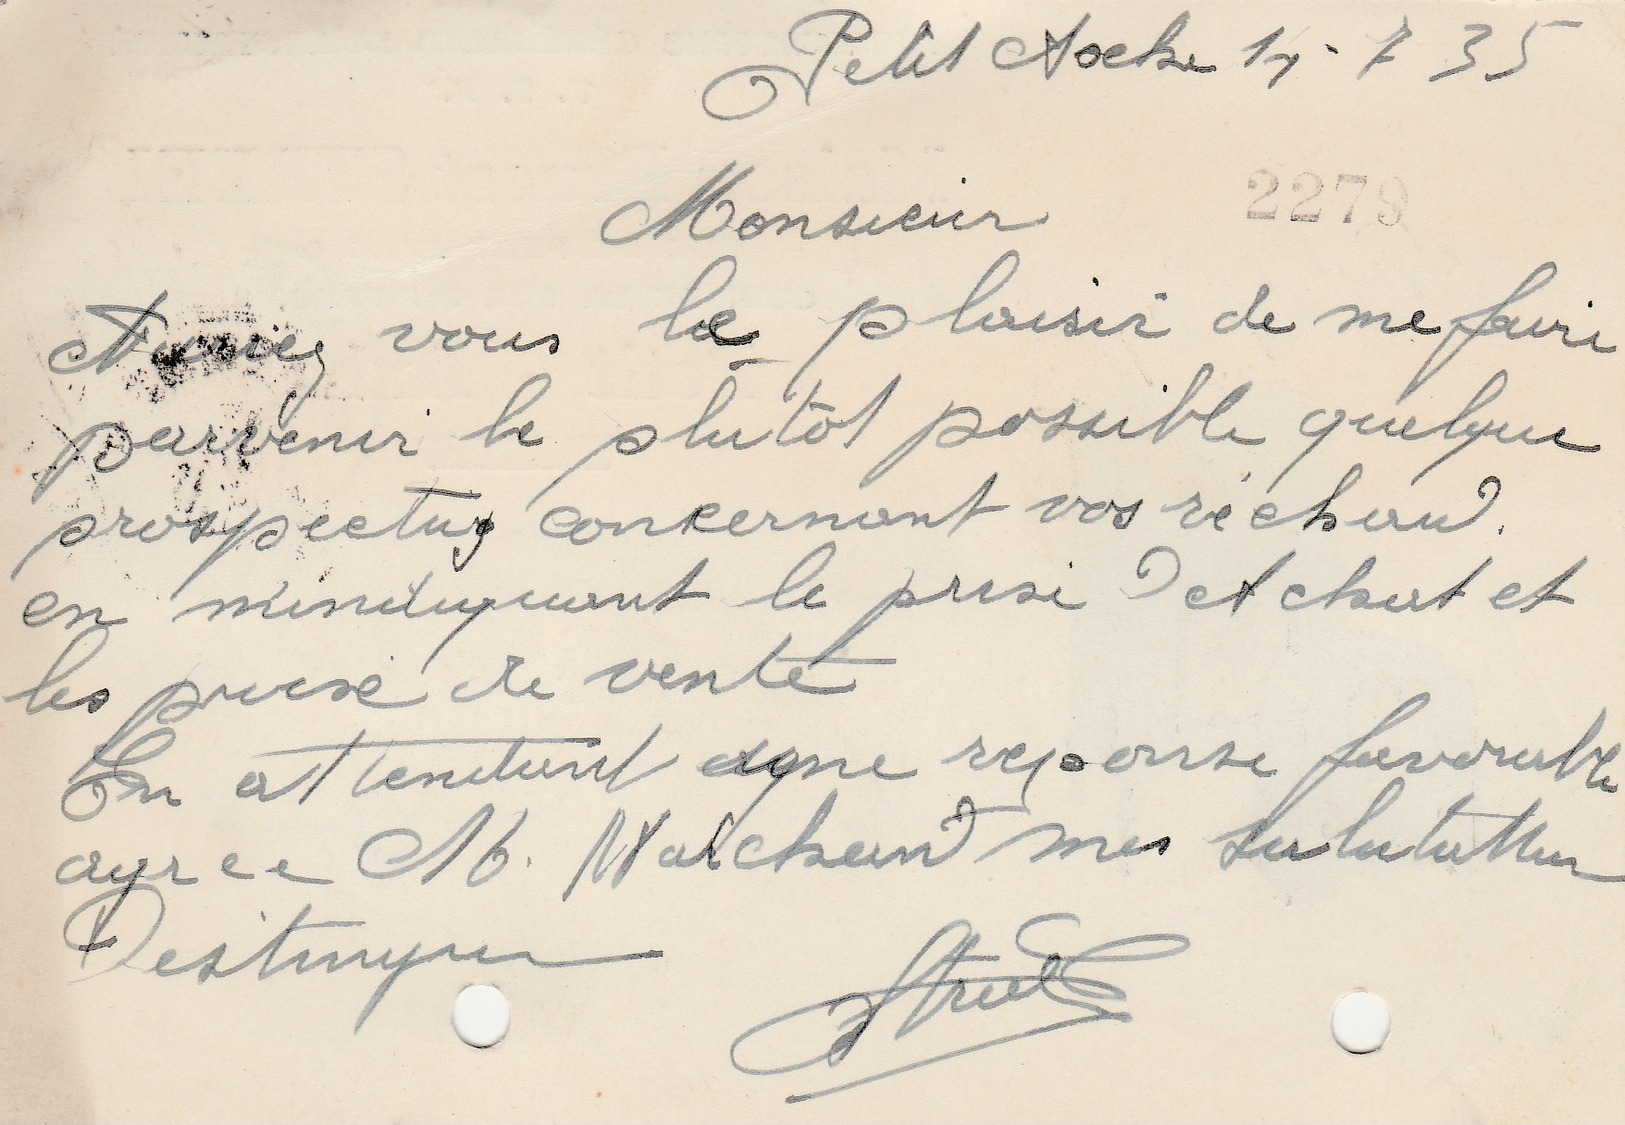 Petit Axhe 14-7 35
2279
Monsieur
Auriez vous le plaisir de me faire
parvenir le plutôt possible quelque
prospectus concernant vos réchaud.
en m'indiquant le prise d'Achat et
les prise de vente
En attendant une reponse favorable
agree M. Marchand mes salutation
Destingue